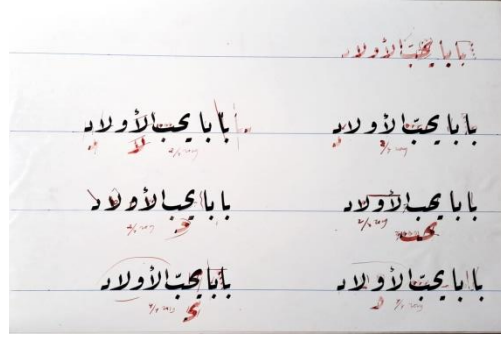 بابا يحبّ الأولاد
بابا يحبّ الأولاد بابا يحب الأولاد
بابا يحب الأولاد بابا يحب الأولاد
بابا يحبّ الأولاد بابا يحبّ الأولاد